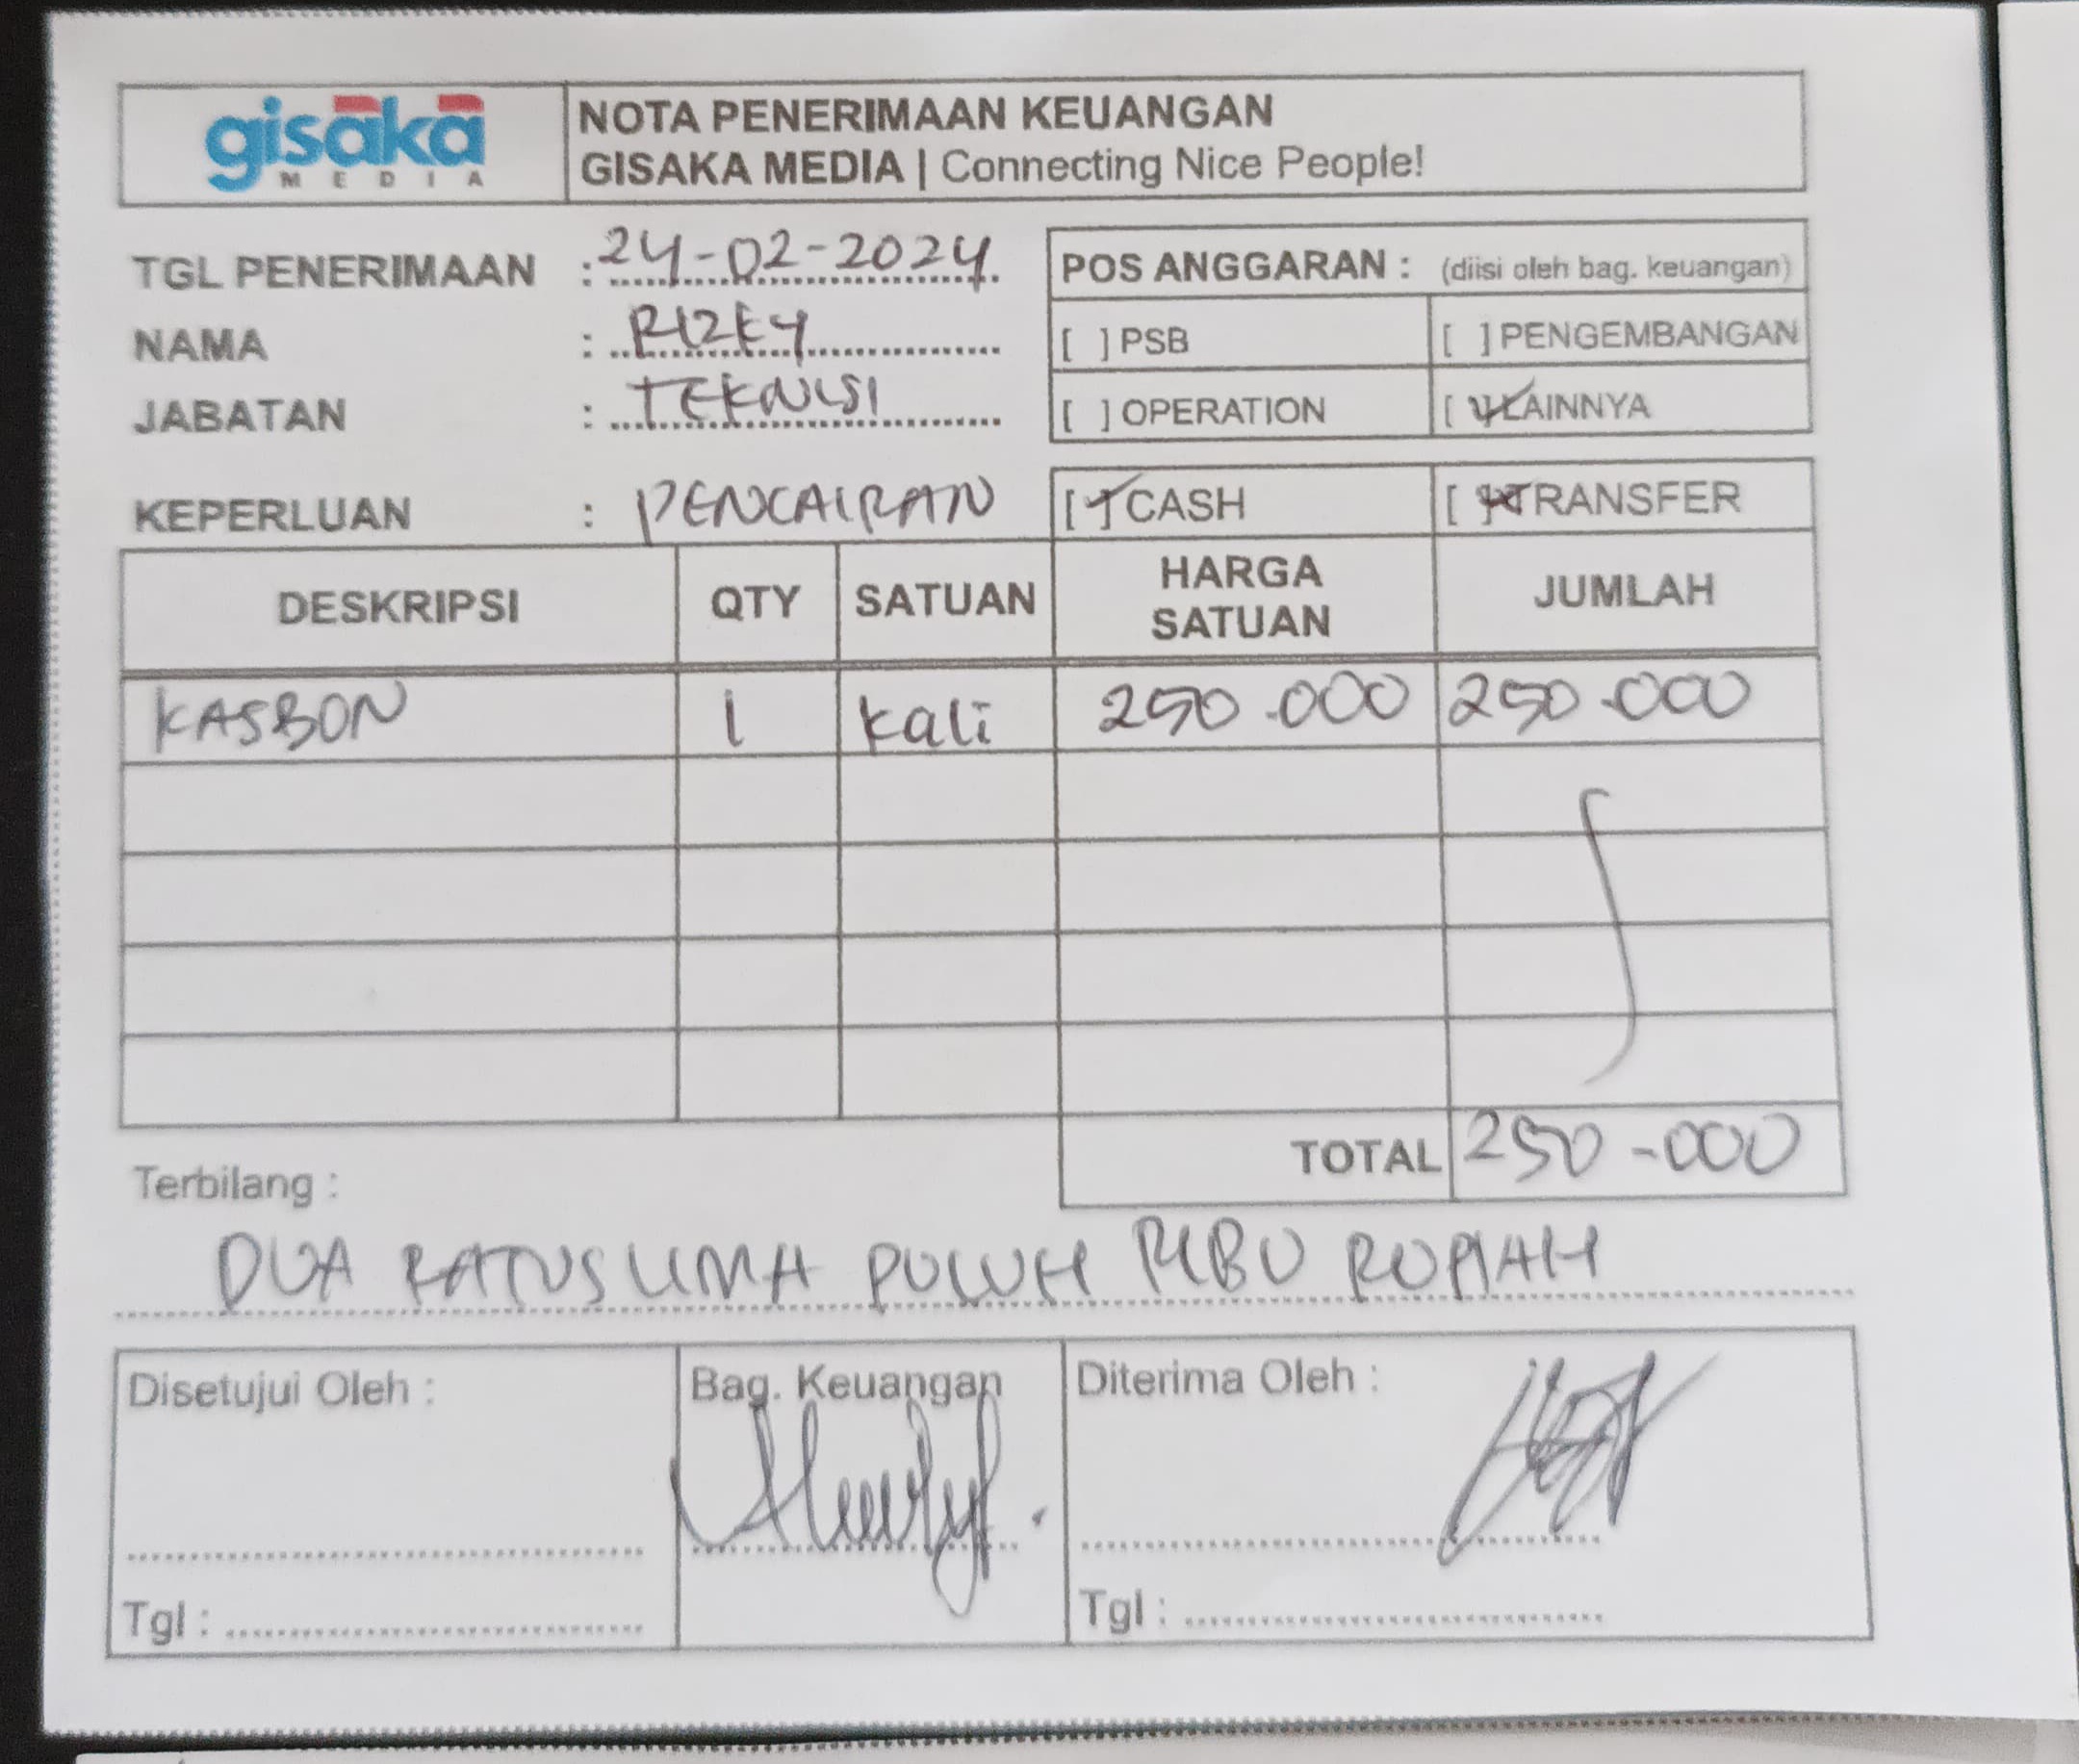 gisaka
MEDIA
NOTA PENERIMAAN KEUANGAN
GISAKA MEDIA | Connecting Nice People!
TGL PENERIMAAN : 24-02-2024
NAMA : RIZKY
JABATAN : TEKNISI
POS ANGGARAN : (diisi oleh bag. keuangan)
[ ] PSB [ ] PENGEMBANGAN
[ ] OPERATION [✓] LAINNYA
KEPERLUAN : PENCAIRAN [✓] CASH [ ] TRANSFER
DESKRIPSI QTY SATUAN HARGA SATUAN JUMLAH
KASBON 1 kali 250.000 250.000
TOTAL 250-000
Terbilang :
DUA RATUS LIMA PULUH RIBU RUPIAH
Disetujui Oleh : Bag. Keuangan Diterima Oleh :
Tgl : Tgl :